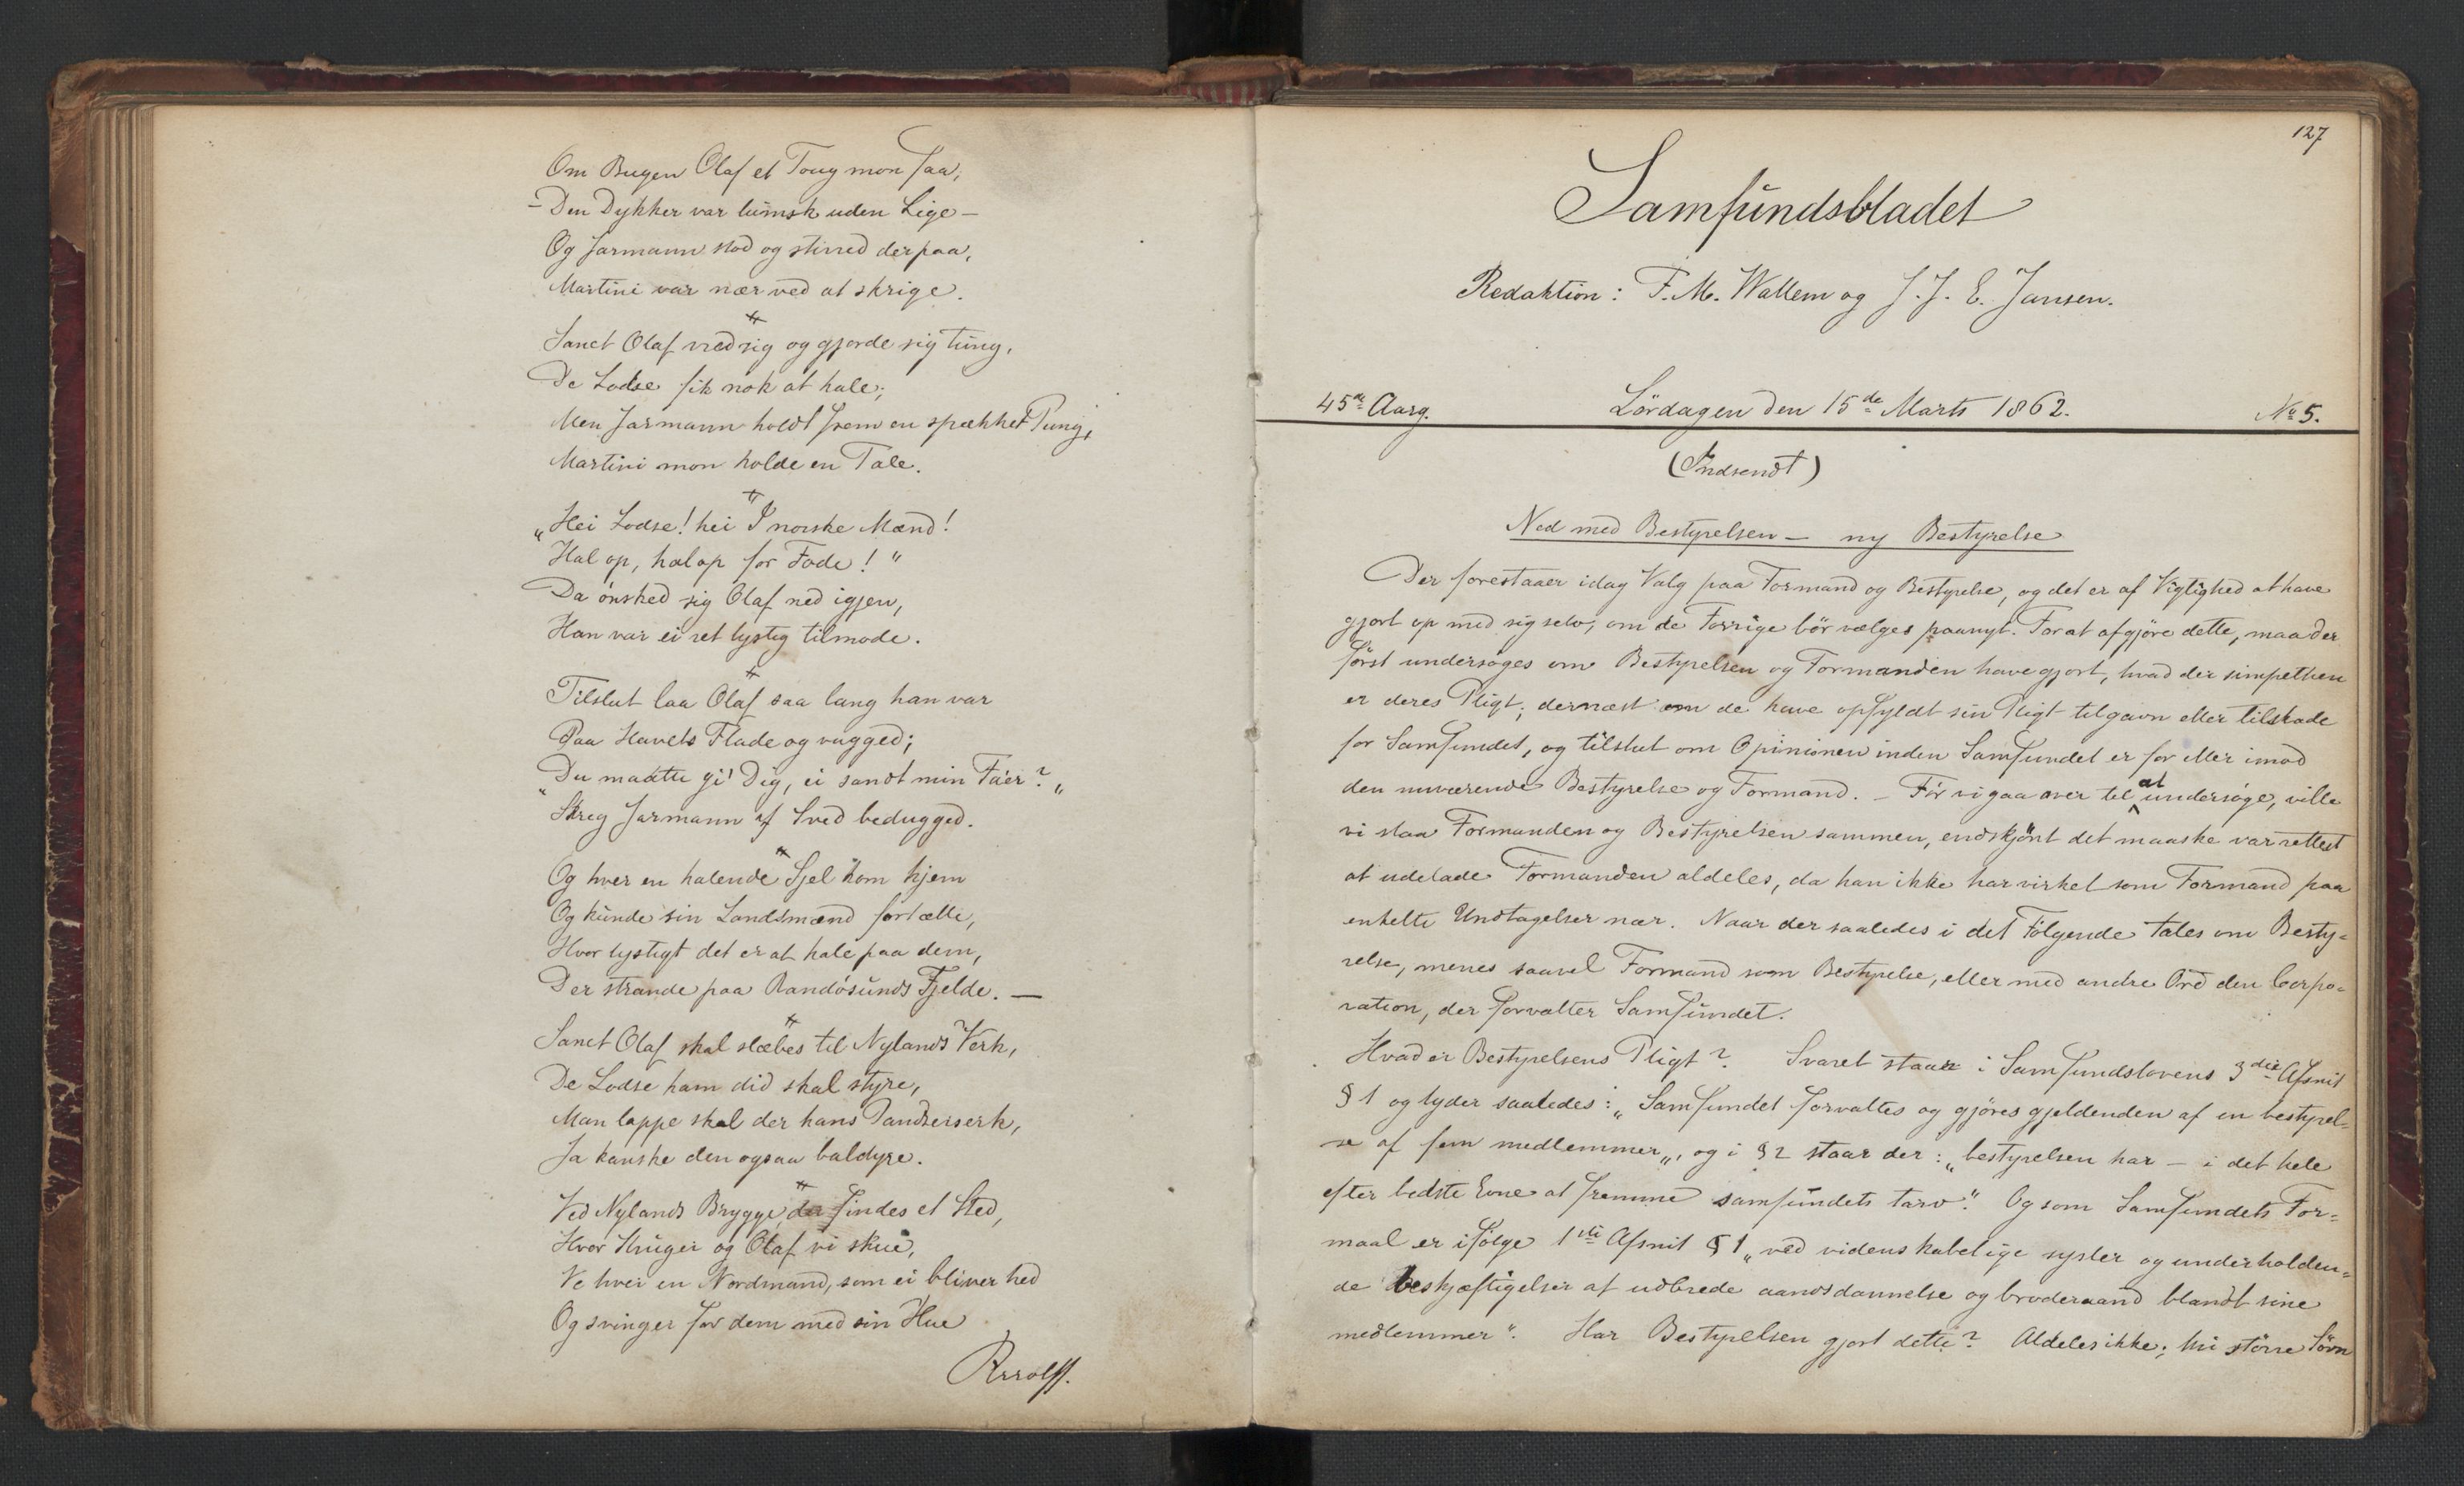 Om Bugen Olaf et Toug mon faa,
– Den Dykker var lumsk uden Lige –
Og Jarmann stod og stirred derpaa,
Martini var nær ved at skrige.
Sanct Olaf vred sig og gjorde sig tung,
De Lodse fik nok at hale;
Men Jarmann holdt frem en spækket Pung,
Martini mon holde en Tale.
„Hei Lodse! hei I norske Mænd!
Hal op, hal op for Fode!"
Da önsked sig Olaf ned igjen,
Han var ei ret lystig tilmode.
Tilslut laa Olaf saa lang han var
Paa Havets Flade og vugged;
„Du maatte gi' Dig, ei sandt min Faer?"
Skreg Jarmann af Sved bedugged.
Og hver en halende Sjel kom hjem
Og kunde sin Landsmænd fortælle,
Hvor lystigt det er at hale paa dem,
Der strande paa Randösunds Fjelde. —
Sanct Olaf skal slæbes til Nylands Verk,
De Lodse ham did skal styre,
Man lappe skal der hans Pandserserk,
Ja kanske den ogsaa baldyre.
Ved Nylands Brygge der findes et Sted,
Hvor Krüger og Olaf vi skue,
Ve hver en Nordmand, som ei bliver hed
Og svinger for dem med sin Hue
Rrrolff.
127
Samfundsbladet
Redaktion: F. M. Wallem og J. J. E. Jansen.
45de Aarg. Lördagen den 15de Marts 1862. No 5.
(Indsendt)
Ned med Bestyrelsen — ny Bestyrelse
Der forestaaer idag Valg paa Formand og Bestyrelse, og det er af Vigtighed at have
gjort op med sig selv, om de Forrige bör vælges paanyt. For at afgjöre dette, maa der
först undersöges om Bestyrelsen og Formanden have gjort, hvad der simpelthen
er deres Pligt; dernæst om de have opfyldt sin Pligt tilgavn eller tilskade
for Samfundet, og tilslut om Opinionen inden Samfundet er for eller imod
den nuværende Bestyrelse og Formand. – För vi gaa over til at undersöge, ville
vi slaa Formanden og Bestyrelsen sammen, endskjönt det maaske var rettest
at udelade Formanden aldeles, da han ikke har virket som Formand paa
enkelte Undtagelser nær. Naar der saaledes i det Fölgende tales om Besty=
relse, menes saavel Formand som Bestyrelse, eller med andre Ord den Corpo=
ration, der forvalter Samfundet.
Hvad er Bestyrelsens Pligt? Svaret staar i Samfundslovens 3die Afsnit
§ 1 og lyder saaledes: „Samfundet forvaltes og gjöres gjeldenden af en bestyrel=
se af fem medlemmer„, og i § 2 staar der: „bestyrelsen har – i det hele
efter bedste Evne at fremme samfundets tarv". Og som Samfundets For=
maal er ifölge 1ste Afsnit § 1 „ved videnskabelige sysler og underholden=
de beskjæftigelser at udbrede aandsdannelse og broderaand blandt sine
medlemmer". Har Bestyrelsen gjort dette? Aldeles ikke; thi större Sövn